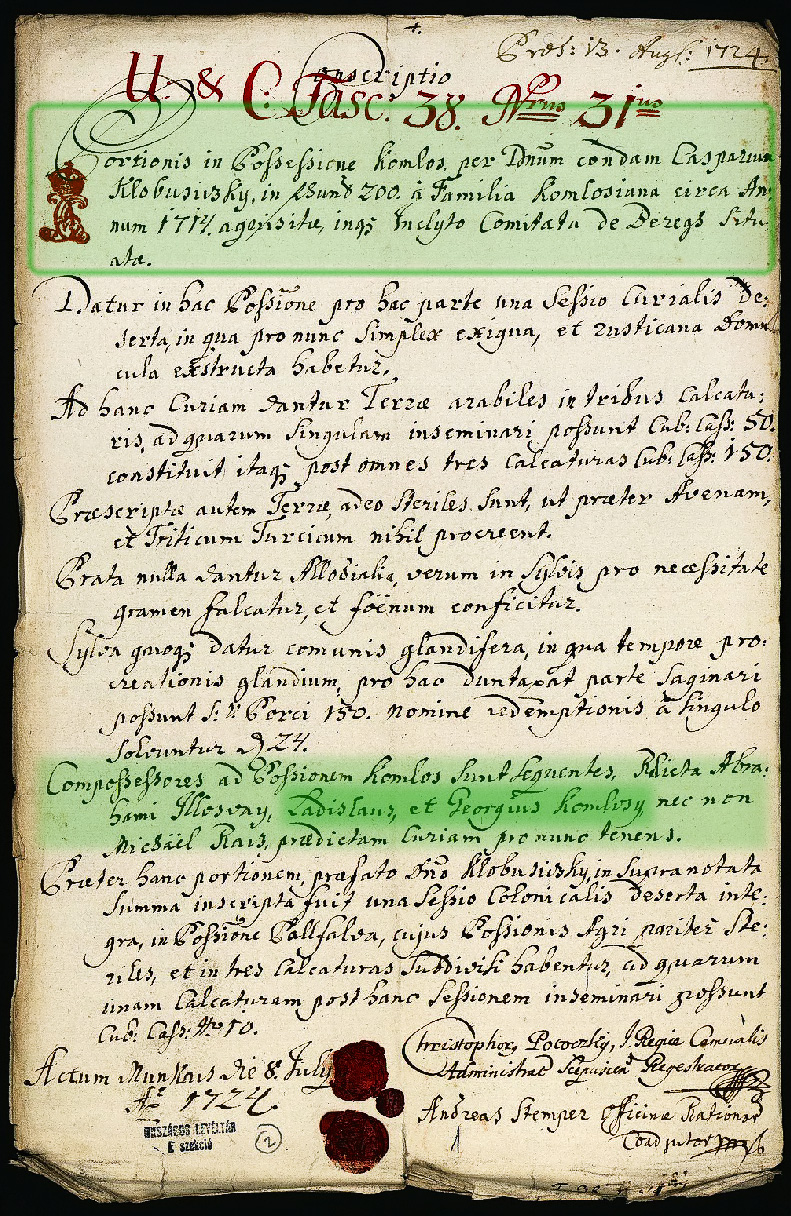 Præs: 13. Augs: 1724.
U. & C. Fasc: 38. Nrus 31us
Conscriptio
Portionis in Possessione Komlos, per Dnum condam Casparum
Klobusiczky, in Rhund 200. à Familia Komlosiana circa An„
num 1714. aquisitæ, inqȝ Inclyto Comitatu de Beregh Situ
atæ.
Datur in hac Possione pro hac parte una Sessio Curialis de„
serta, in qua pro nunc simplex exigua, et rusticana domun
cula exstructa habetur.
Ad hanc Curiam dantur Terræ arabiles in tribus Calcatu„
ris, ad quarum singulam inseminari possunt Cub: Cass: 50.
constituit itaqȝ post omnes tres Calcaturas Cub: Cass: 150.
Præscriptæ autem Terræ, adeo steriles sunt, ut præter Avenam,
et Triticum Turcicum nihil procreent.
Prata nulla dantur Allodialia, verum in Sylvis pro necessitate
gramen falcatur, et foenum conficitur.
Sylva quoqȝ datur comunis glandifera, in qua tempore pro„
creationis glandium, pro hac duntaxat parte saginari
possunt S: V: Porci 150. nomine redemptionis à singulo
solvuntur d 24.
Compossessores ad Possionem Komlos sunt sequentes, Relicta Abra„
hami Illosvay, Ladislaus, et Georgius Komlosy nec non
Michäel Rais, prædictam Curiam pro nunc tenens.
Præter hanc portionem, præfato Dno Klobusiczky, in supra notata
Summa inscripta fuit una Sessio Colonicalis deserta inte„
gra, in Possione Pallfalva, cujus Possionis Agri pariter ste„
riles, et in tres Calcaturas subdivisi habentur, ad quarum
unam Calcaturam post hanc Sessionem inseminari possunt
Cub: Cass: Nro 10.
Actum Munkacs die 8. July
Ao 1724.
Christophor, Potoczky, I. Regiæ Cameralis
Administraõ Scepusien Regestrator
Andreas Stemper Officinæ Rationar
Coadjutor
ORSZÁGOS LEVÉLTÁR
E szekció
2